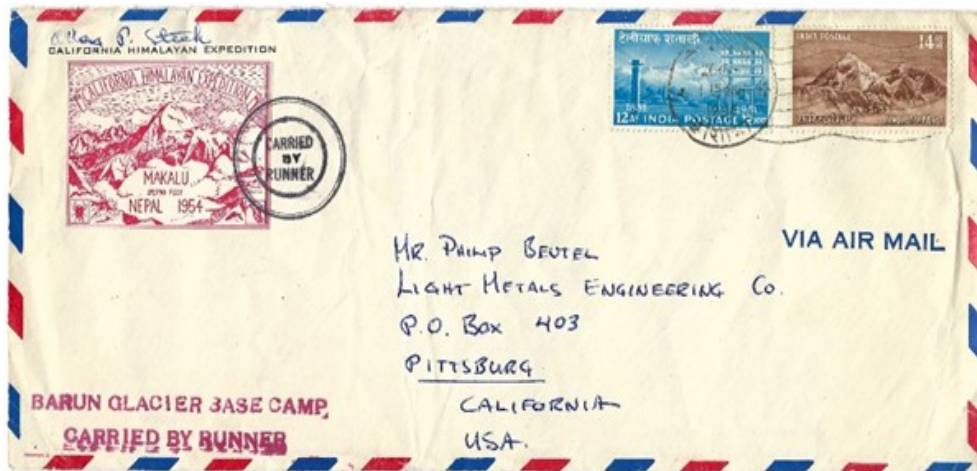 Allen P. Steck
CALIFORNIA HIMALAYAN EXPEDITION
CALIFORNIA HIMALAYAN EXPEDITION
MAKALU
NEPAL 1954
CARRIED
BY
RUNNER
टेलीग्राफ शताब्दी
1851 1951
12 AS INDIA POSTAGE
INDIA POSTAGE 14 AS
VIA AIR MAIL
MR. PHILIP BEUTEL
LIGHT METALS ENGINEERING Co.
P.O. BOX 403
PITTSBURG
CALIFORNIA
USA.
BARUN GLACIER BASE CAMP,
CARRIED BY RUNNER